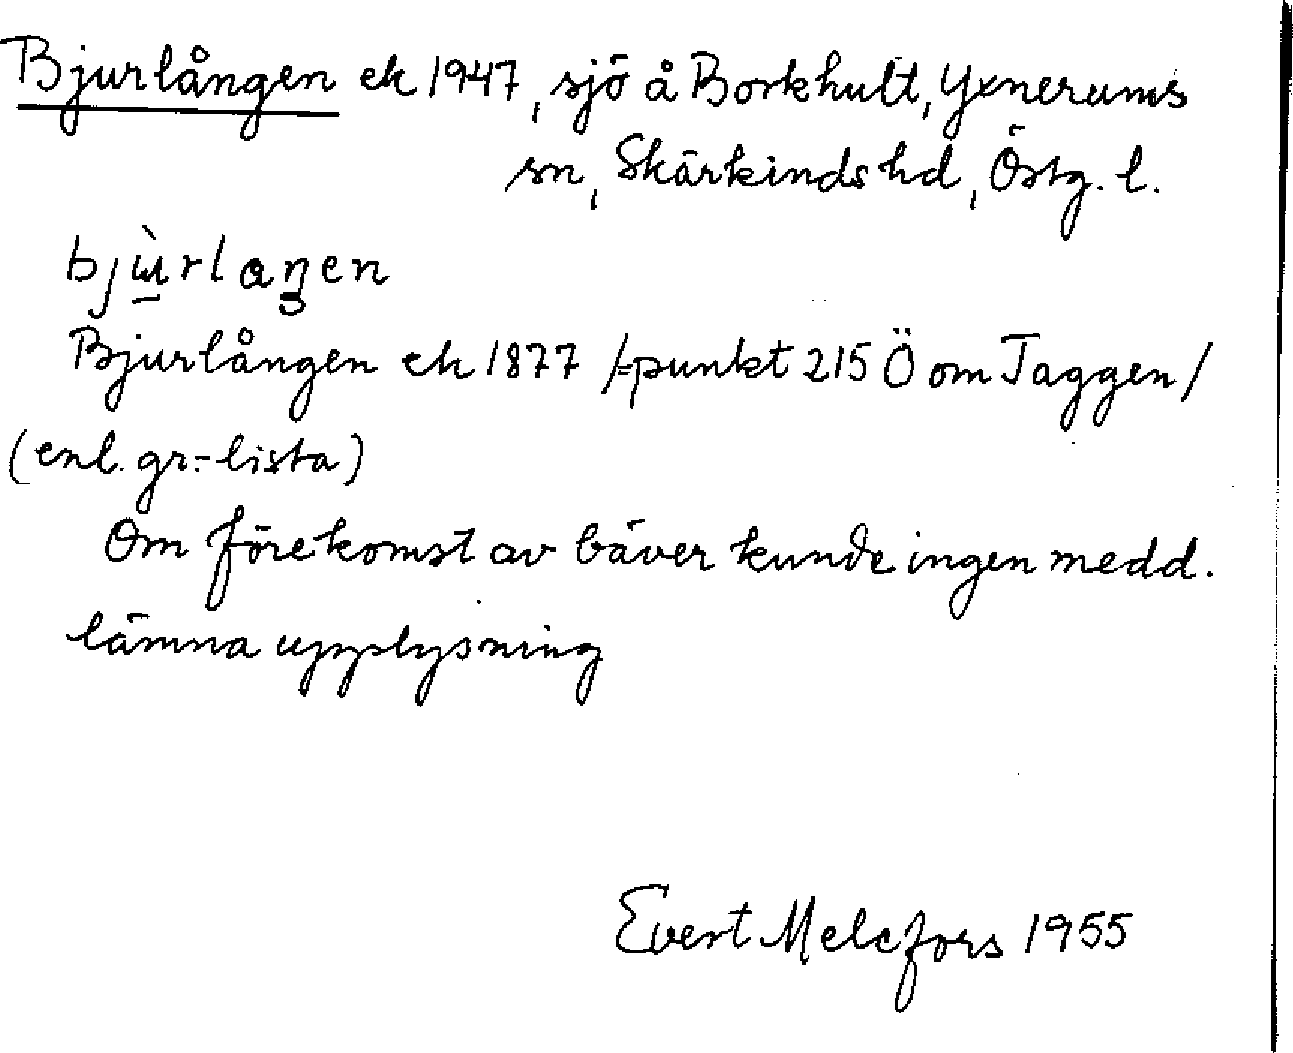 Bjurlången ek 1947, sjö å Borkhult, Yxnerums
sn, Skärkinds hd, Östg. l.
bjùrlaŋen
Bjurlången ek 1877 /=punkt 215 Ö om Taggen/
(enl. gr.-lista)
Om förekomst av bäver kunde ingen medd.
lämna upplysning
Evert Melefors 1955